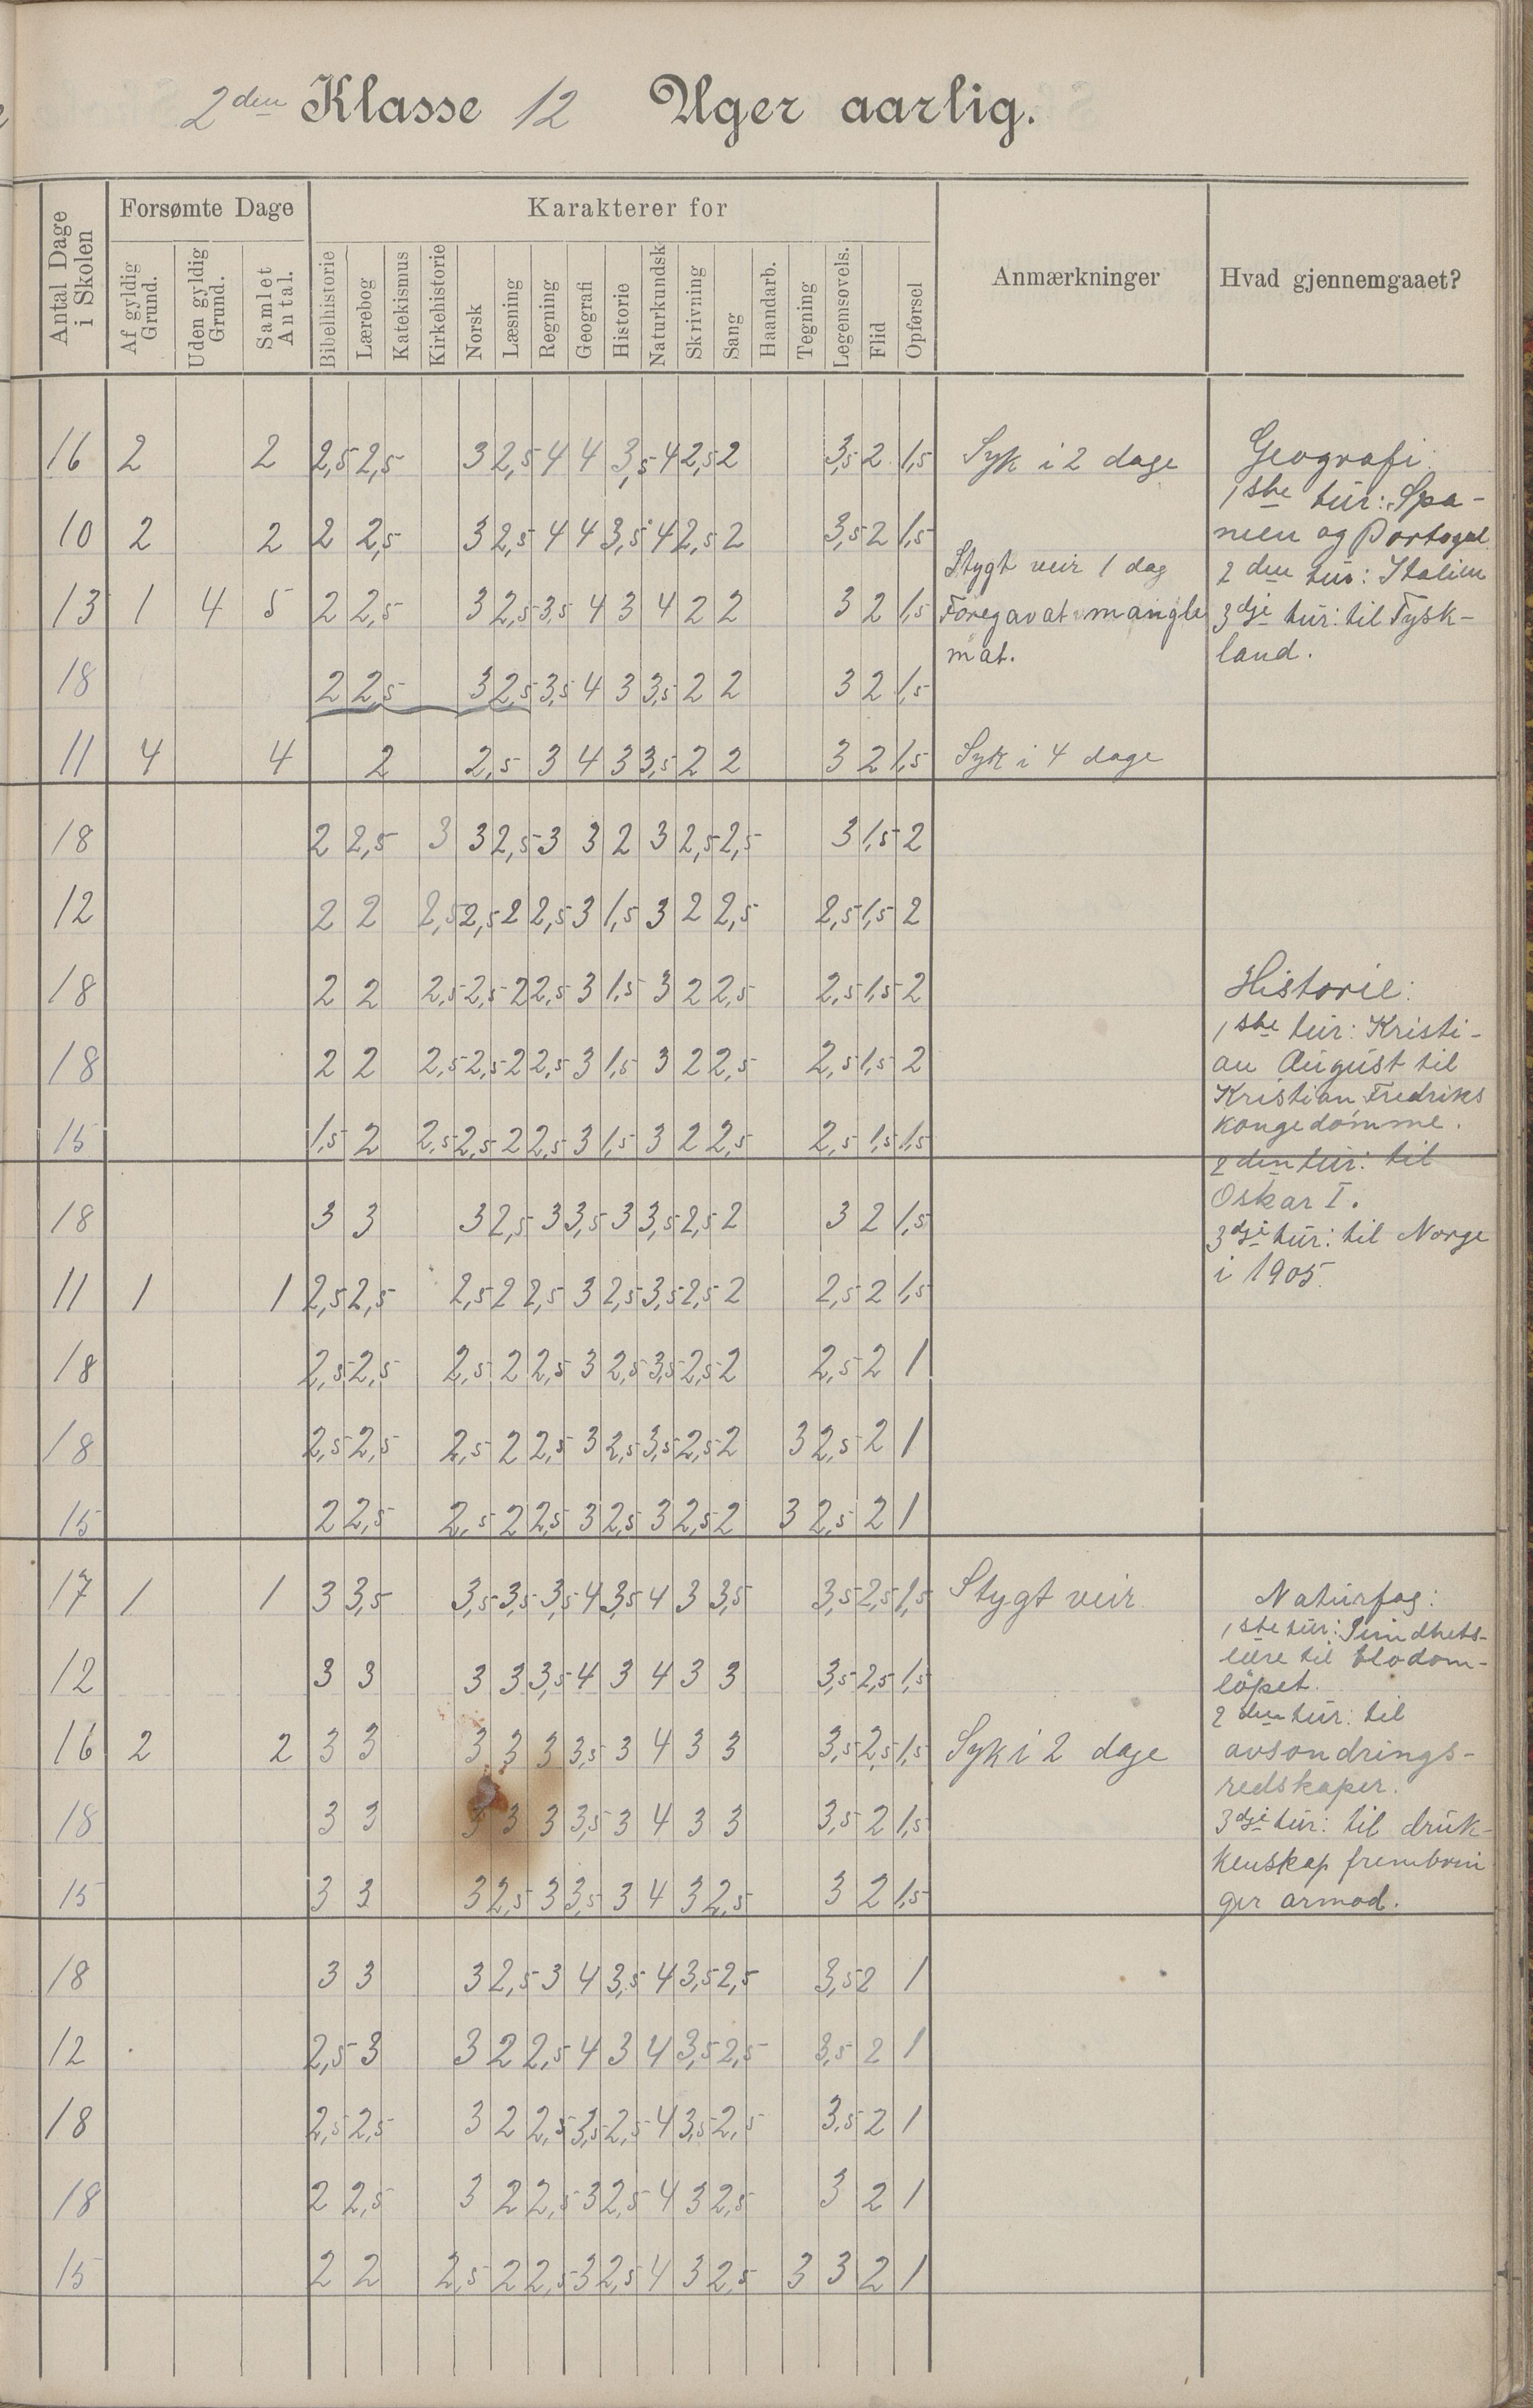 2den Klasse 12 Uger aarlig.
Antal Dage i Skolen
Forsømte Dage
Karakterer for
Anmærkninger
Hvad gjennemgaaet?
Af gyldig Grund.
Uden gyldig Grund.
Samlet Antal.
Bibelhistorie
Lærebog
Katekismus
Kirkehistorie
Norsk
Læsning
Regning
Geografi
Historie
Naturkundsk.
Skrivning
Sang
Haandarb.
Tegning
Legemsøvels.
Flid
Opførsel
16 2 2 2,5 2,5 3 2,5 4 4 3,5 4 2,5 2 3,5 2 1,5 Syk i 2 dage
10 2 2 2 2,5 3 2,5 4 4 3,5 4 2,5 2 3,5 2 1,5
Stygt veir 1 dag
13 1 4 5 2 2,5 3 2,5 3,5 4 3 4 2 2 3 2 1,5 Foregav at mangle
mat.
18 2 2,5 3 2,5 3,5 4 3 3,5 2 2 3 2 1,5
11 4 4 2 2,5 3 4 3 3,5 2 2 3 2 1,5 Syk i 4 dage
18 2 2,5 3 3 2,5 3 3 2 3 2,5 2,5 3 1,5 2
12 2 2 2,5 2,5 2 2,5 3 1,5 3 2 2,5 2,5 1,5 2
18 2 2 2,5 2,5 2 2,5 3 1,5 3 2 2,5 2,5 1,5 2
18 2 2 2,5 2,5 2 2,5 3 1,5 3 2 2,5 2,5 1,5 2
15 1,5 2 2,5 2,5 2 2,5 3 1,5 3 2 2,5 2,5 1,5 1,5
18 3 3 3 2,5 3 3,5 3 3,5 2,5 2 3 2 1,5
11 1 1 2,5 2,5 2,5 2 2,5 3 2,5 3,5 2,5 2 2,5 2 1,5
18 2,5 2,5 2,5 2 2,5 3 2,5 3,5 2,5 2 2,5 2 1
18 2,5 2,5 2,5 2 2,5 3 2,5 3,5 2,5 2 3 2,5 2 1
15 2 2,5 2,5 2 2,5 3 2,5 3 2,5 2 3 2,5 2 1
17 1 1 3 3,5 3,5 3,5 3,5 4 3,5 4 3 3,5 3,5 2,5 1,5 Stygt veir
12 3 3 3 3 3,5 4 3 4 3 3 3,5 2,5 1,5
16 2 2 3 3 3 3 3 3,5 3 4 3 3 3,5 2,5 1,5 Syk i 2 dage
18 3 3 3 3 3 3,5 3 4 3 3 3,5 2 1,5
15 3 3 3 2,5 3 3,5 3 4 3 2,5 3 2 1,5
18 3 3 3 2,5 3 4 3,5 4 3,5 2,5 3,5 2 1
12 2,5 3 3 2 2,5 4 3 4 3,5 2,5 3,5 2 1
18 2,5 2,5 3 2 2,5 3,5 2,5 4 3,5 2,5 3,5 2 1
18 2 2,5 3 2 2,5 3 2,5 4 3 2,5 3 2 1
15 2 2 2,5 2 2,5 3 2,5 4 3 2,5 3 3 2 1
Geografi:
1ste tur: Spa-
nien og Portogal
2den tur: Italien
3dje tur: til Tysk-
land.
Historie:
1ste tur: Kristi-
an August til
Kristian Fredriks
kongedømme.
2den tur: til
Oskar I.
3dje tur: til Norge
i 1905.
Naturfag:
1ste tur: Sundhets-
lære til blodom-
löpet.
2den tur: til
avsondrings-
redskaper.
3dje tur: til druk-
kenskap frembrin
ger armod.